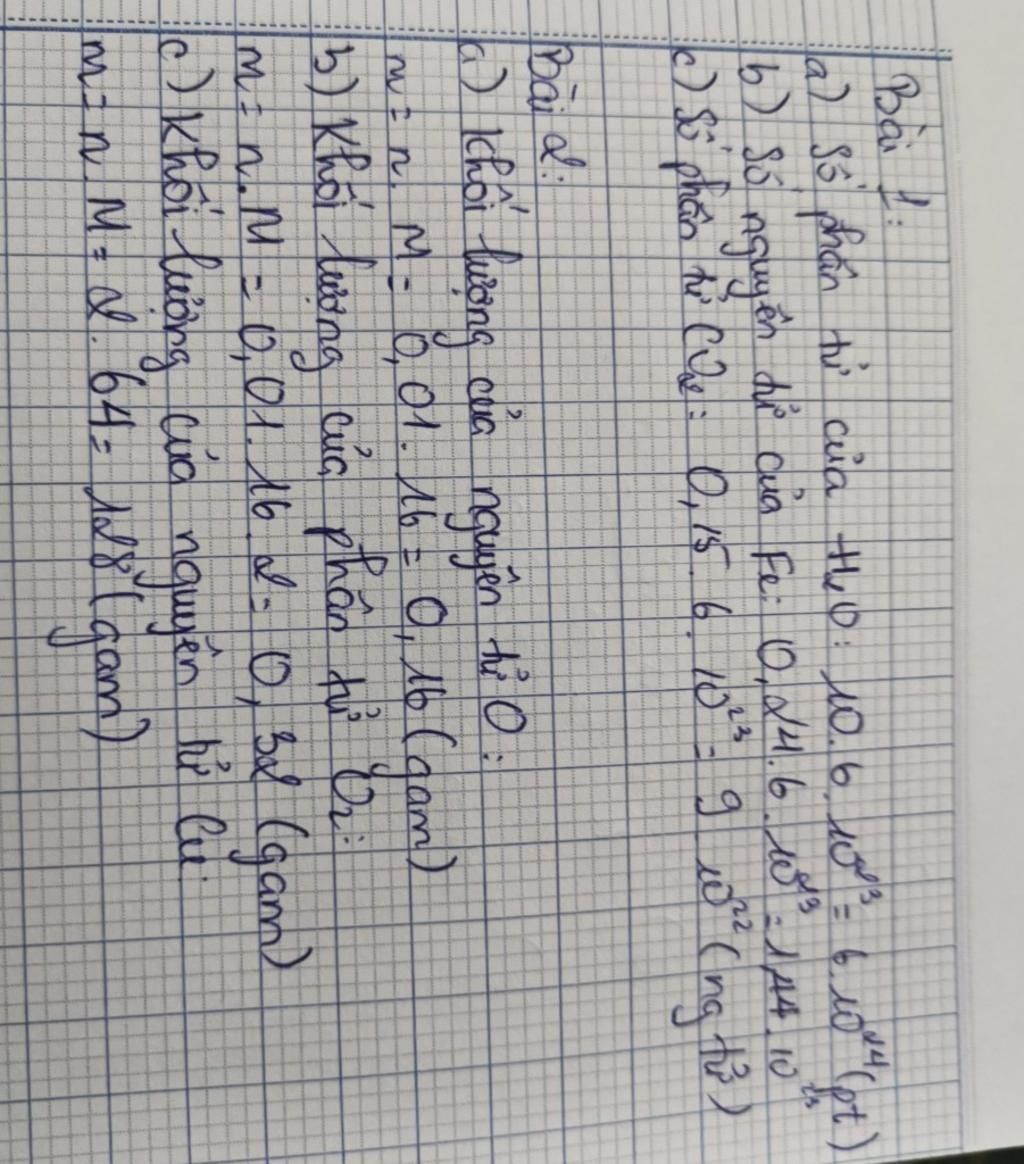 Bài 1:
a) Số phân tử của H₂O: 10.6.10²³ = 6.10²⁴ (pt)
b) Số nguyên tử của Fe: 0,24.6.10²³ = 1,44.10²³
c) Số phân tử CO₂: 0,15.6.10²³ = 9.10²² (ng tử)
Bài 2:
a) Khối lượng của nguyên tử O:
m = n.M = 0,01.16 = 0,16 (gam)
b) Khối lượng của phân tử O₂:
m = n.M = 0,01.16.2 = 0,32 (gam)
c) Khối lượng của nguyên tử Cu:
m = n.M = 2.64 = 128 (gam)